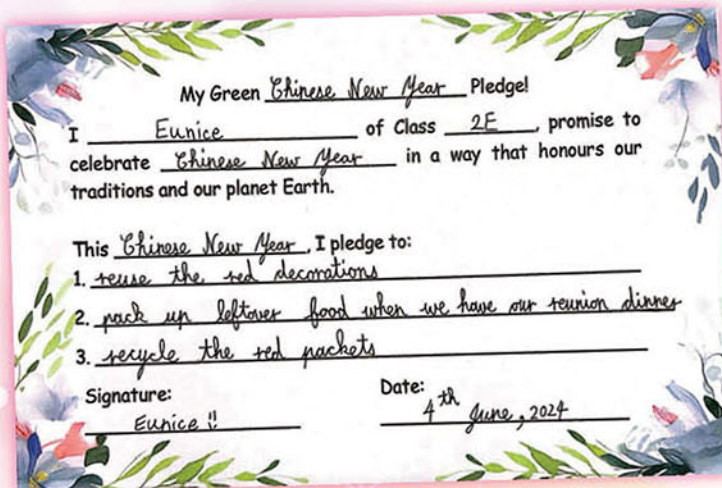 My Green Chinese New Year Pledge!
I Eunice of Class 2E, promise to
celebrate Chinese New Year in a way that honours our
traditions and our planet Earth.
This Chinese New Year, I pledge to:
1. reuse the red decorations
2. pack up leftover food when we have our reunion dinner
3. recycle the red packets
Signature: Date:
Eunice !! 4th June, 2024